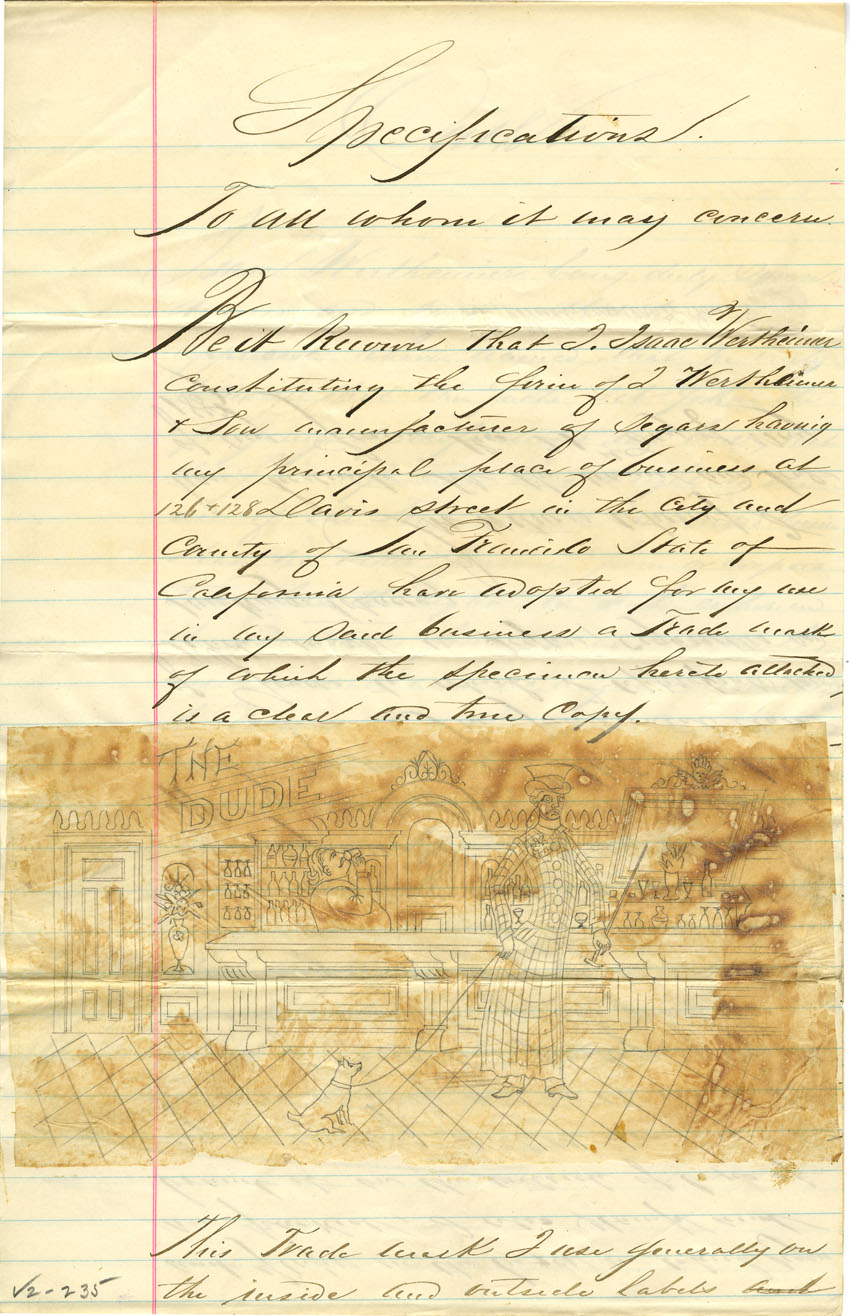 Specifications.
To all whom it may concern.
Be it Known that I. Isaac Wertheimer
constituting the firm of I Wertheimer
& Son manufacturer of Segars having
my principal place of business at
126 & 128 Davis street in the city and
County of San Francisco State of
California have adopted for my use
in my said business a Trade mark
of which the specimen hereto attached,
is a clear and true Copy.
THE
DUDE
This Trade mark I use generally on
the inside and outside labels and
√2-235